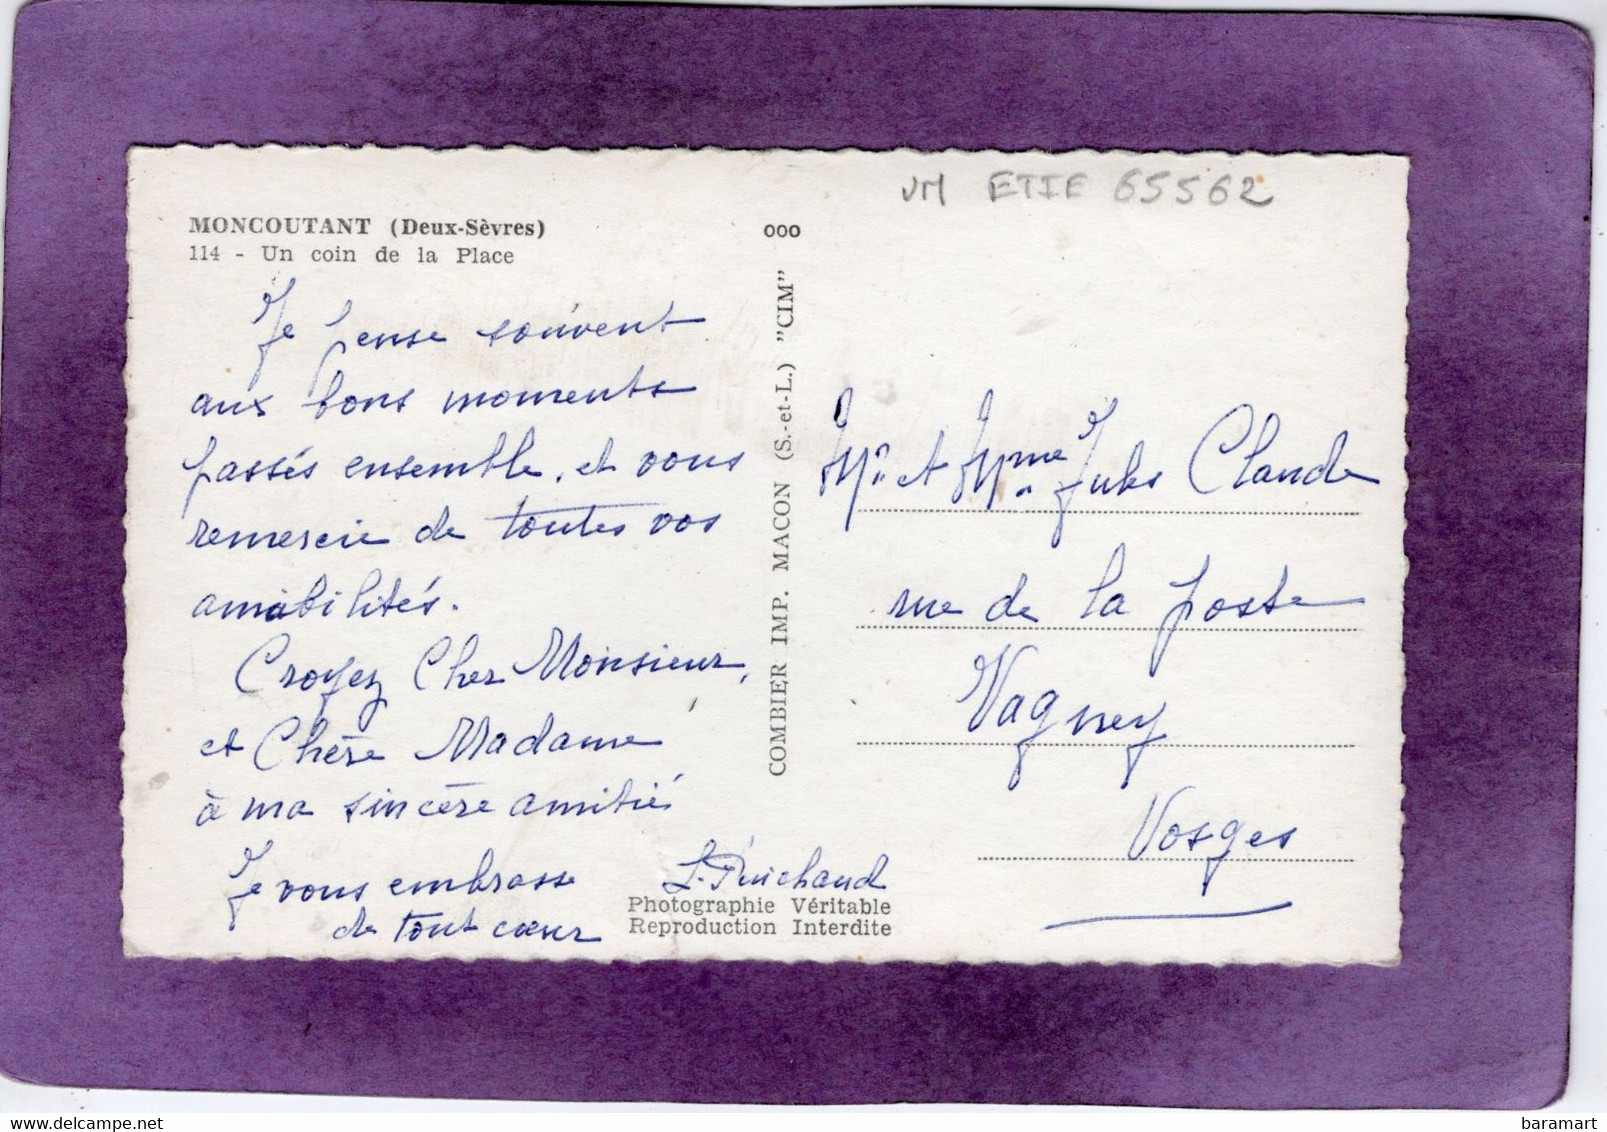 VM ETIE 65562
MONCOUTANT (Deux-Sèvres)
114 - Un coin de la Place
Je pense souvent
aux bons moments
passés ensemble, et vous
remercie de toutes vos
amabilités.
Croyez Cher Monsieur,
et Chère Madame
à ma sincère amitié
Je vous embrasse
de tout cœur
Photographie Véritable
Reproduction Interdite
ooo
COMBIER IMP. MACON (S.-et-L.) "CIM"
Mr et Mme Jules Claude
rue de la poste
Vagney
Vosges
baramart